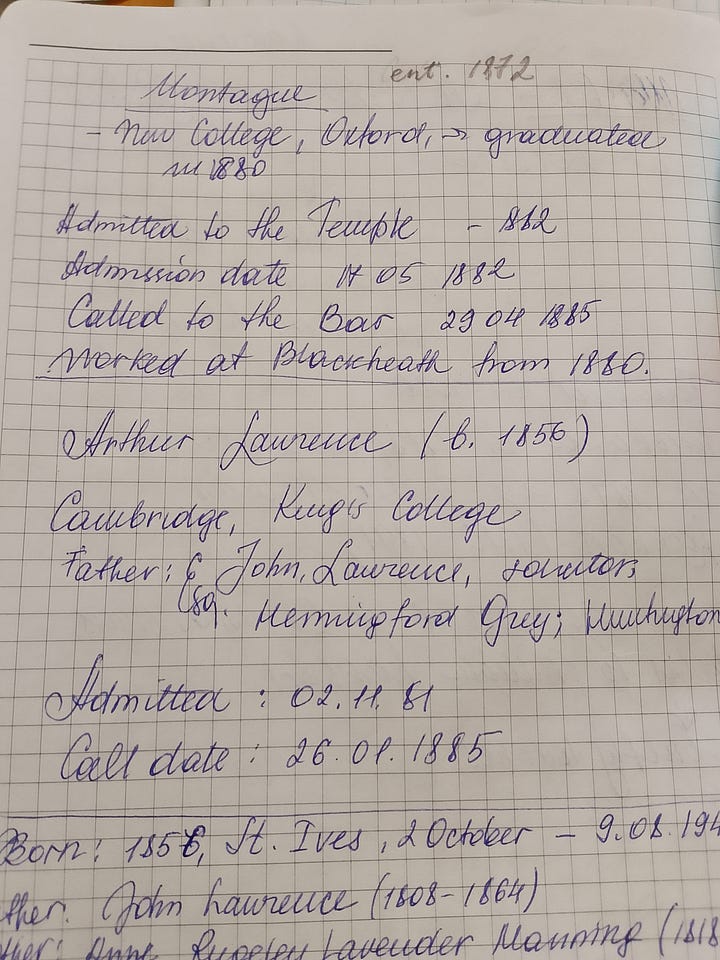 ent. 1872
Montague
- New College, Oxford, → graduated
in 1880
Admitted to the Temple - 1882
Admission date 17 05 1882
Called to the Bar 29 04 1885
Worked at Blackheath from 1880.
Arthur Lawrence (b. 1856)
Cambridge, King's College
Father: John, Lawrence, solicitor,
Esq. Hemmingford Grey; Huntington
Admitted: 02.11.81
Call date: 26.01.1885
Born: 1856, St. Ives, 2 October – 9.08.194
ther. John Lawrence (1808-1864)
ther: Anne Rugeley Lavender Manning (1818